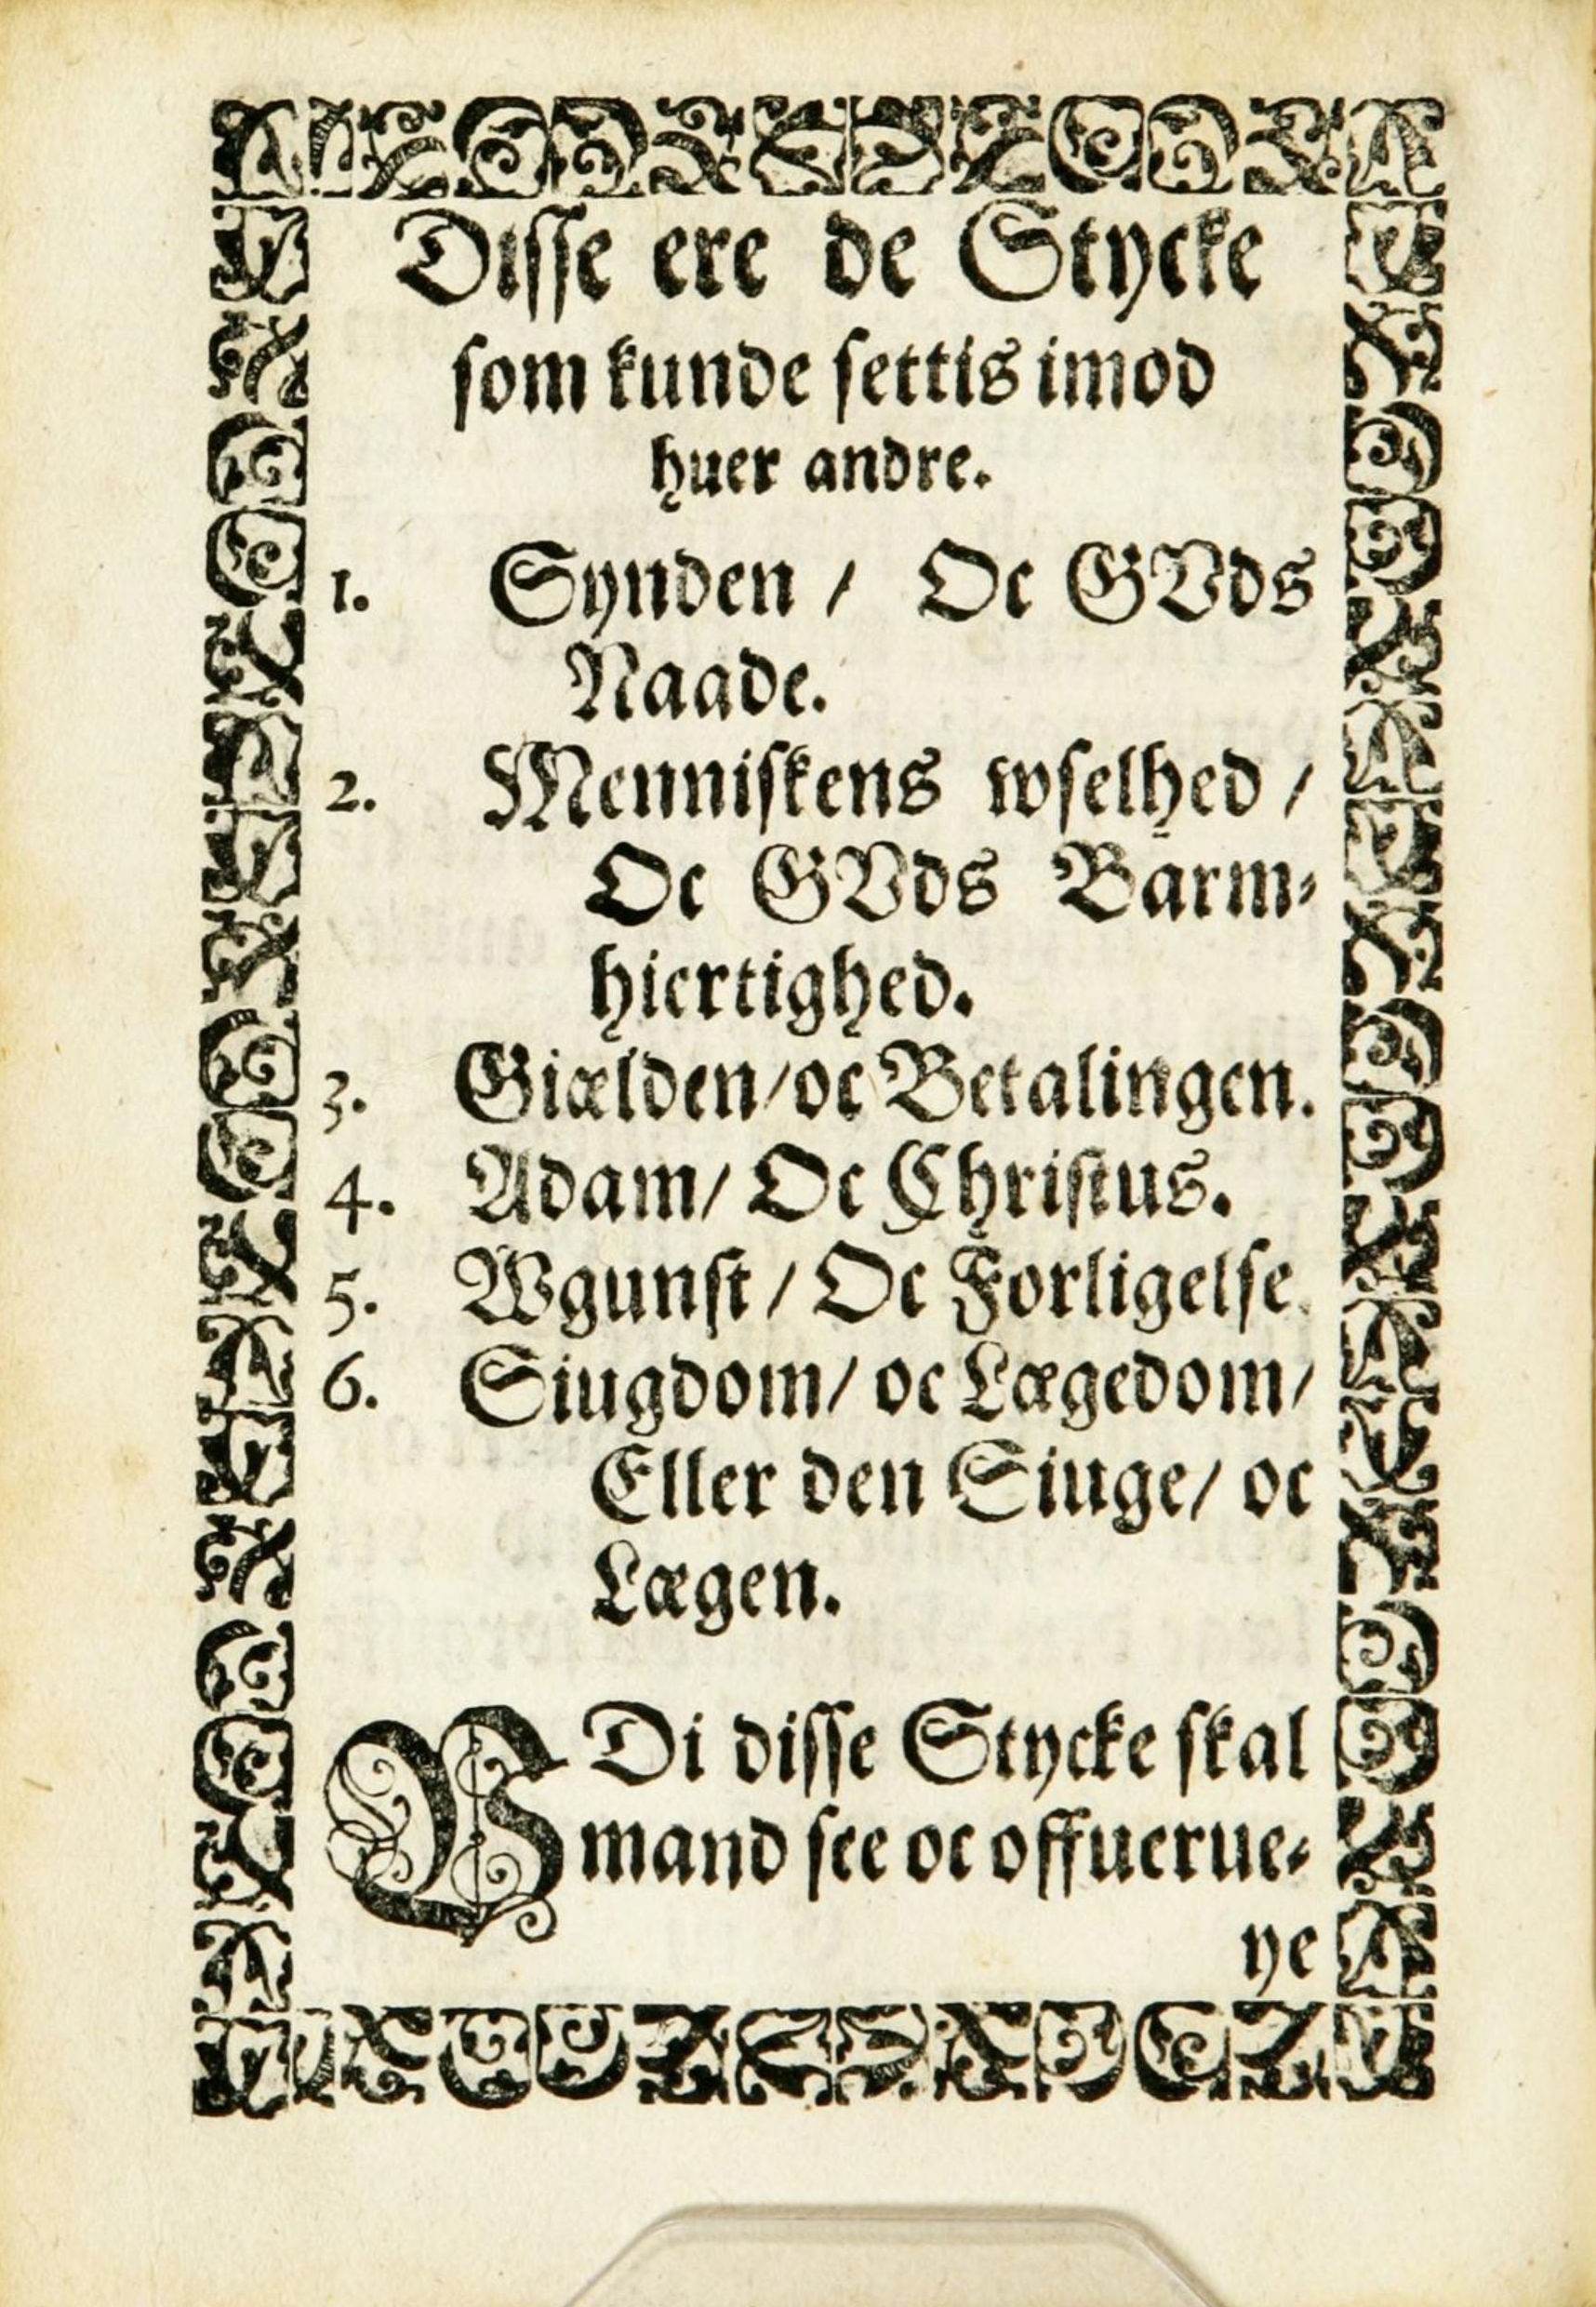 Disse ere de Stycke
som kunde settis imod
huer andre.
1. Synden / Oc GVds
Naade.
2. Menniskens wselhed /
Oc GVds Barm-
hiertighed.
3. Giælden/oc Betalingen.
4. Adam/ Oc Christus.
5. Wgunst / Oc Forligelse.
6. Siugdom/ oc Lægedom/
Eller den Siuge/ oc
Lægen.
VDi disse Stycke skal
mand see oc offuerue-
ye